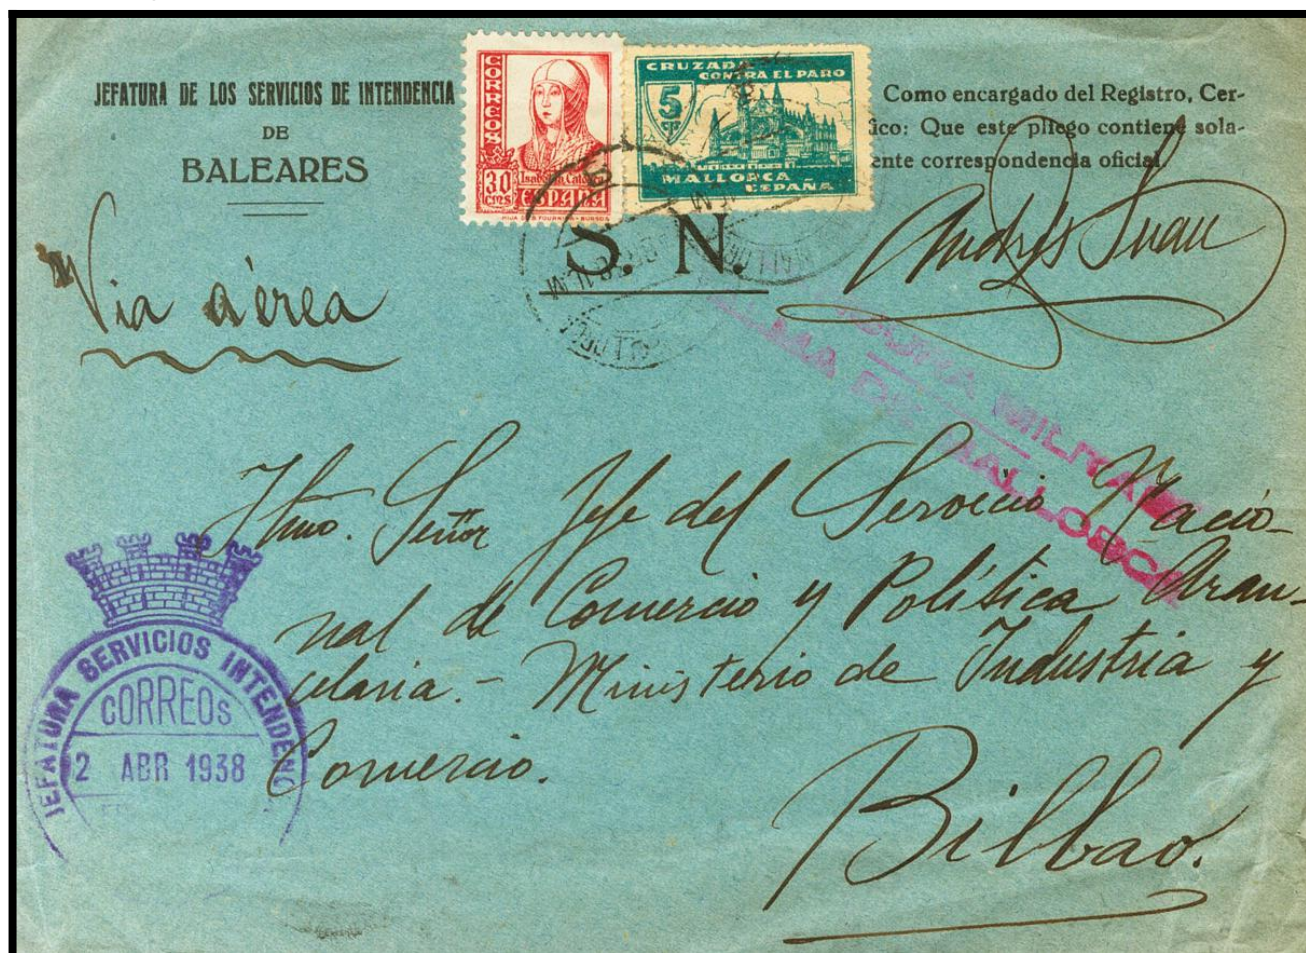 JEFATURA DE LOS SERVICIOS DE INTENDENCIA
DE
BALEARES
CORREOS
Isabel la Católica
30
cms
ESPAÑA
CRUZADA
CONTRA EL PARO
5
MALLORCA
ESPAÑA
Como encargado del Registro, Cer-
fico: Que este pliego contiene sola-
ente correspondencia oficial.
S. N.
Andrés Juan
Via aérea
MILITAR
PALMA DE MALLORCA
Iltmo. Señor Jefe del Servicio Nacio-
nal de Comercio y Política Aran-
celaria.- Ministerio de Industria y
Comercio.
Bilbao.
JEFATURA SERVICIOS INTENDENC
CORREOS
2 ABR 1938